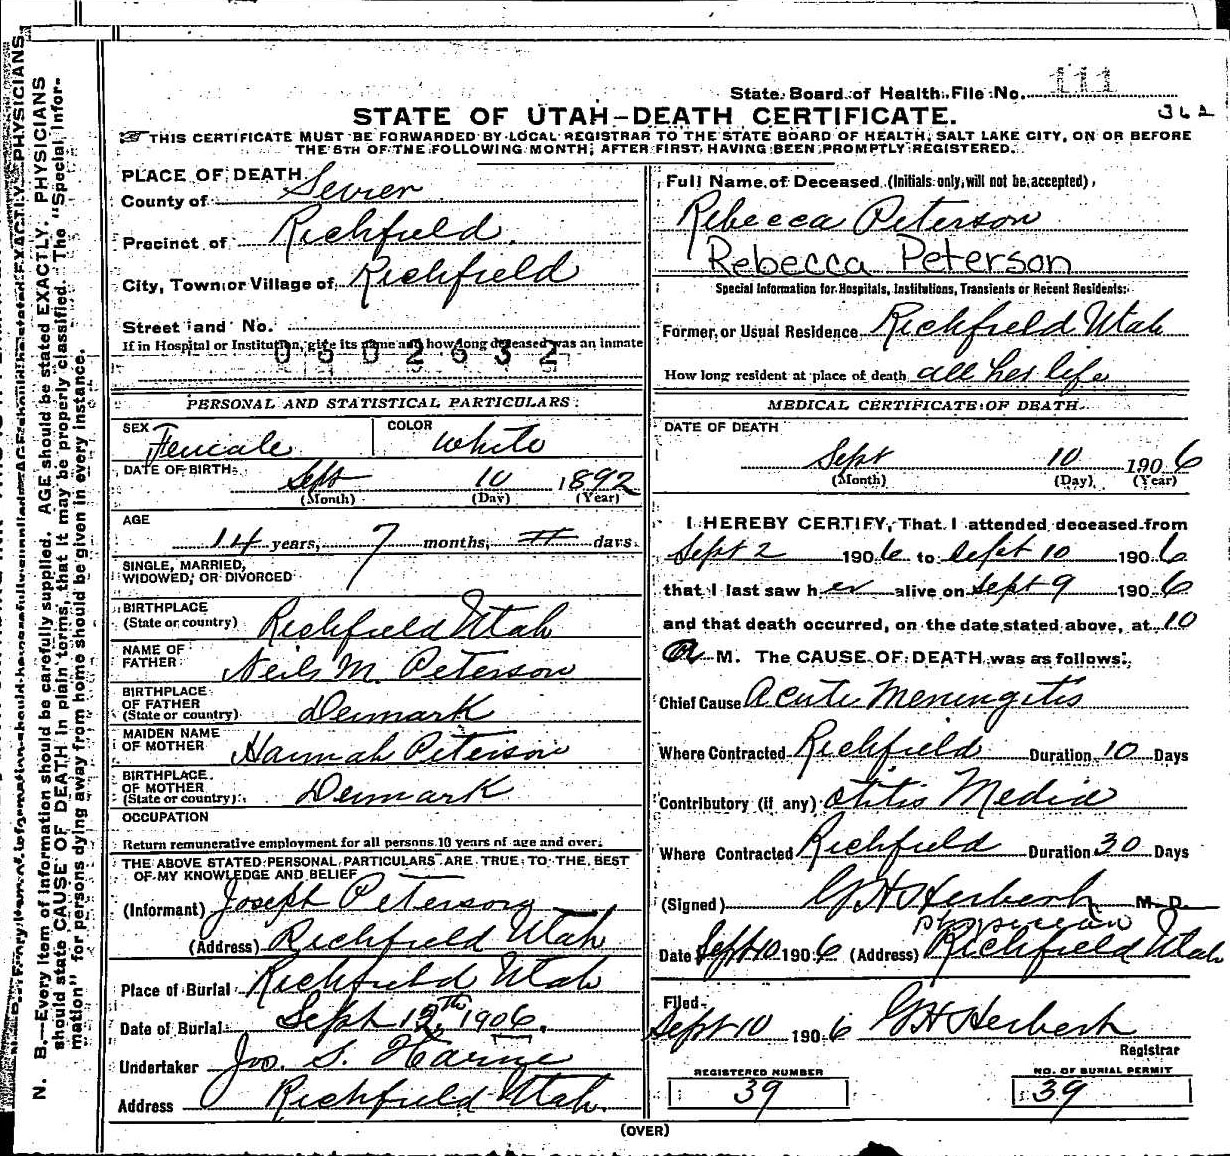 State Board of Health File No. 111
362
STATE OF UTAH—DEATH CERTIFICATE.
THIS CERTIFICATE MUST BE FORWARDED BY LOCAL REGISTRAR TO THE STATE BOARD OF HEALTH, SALT LAKE CITY, ON OR BEFORE
THE 5TH OF THE FOLLOWING MONTH, AFTER FIRST HAVING BEEN PROMPTLY REGISTERED.
PLACE OF DEATH
County of Sevier
Precinct of Richfield.
City, Town or Village of Richfield
Street and No.
If in Hospital or Institution, give its name and how long deceased was an inmate
0602632
PERSONAL AND STATISTICAL PARTICULARS
SEX Female COLOR White
DATE OF BIRTH Sept 10 1892
(Month) (Day) (Year)
AGE
14 years, 7 months, days.
SINGLE, MARRIED,
WIDOWED, OR DIVORCED
BIRTHPLACE
(State or country) Richfield Utah
NAME OF
FATHER Neils M. Peterson
BIRTHPLACE
OF FATHER
(State or country) Denmark
MAIDEN NAME
OF MOTHER Hannah Peterson
BIRTHPLACE
OF MOTHER
(State or country) Denmark
OCCUPATION
Return remunerative employment for all persons 10 years of age and over.
THE ABOVE STATED PERSONAL PARTICULARS ARE TRUE TO THE BEST
OF MY KNOWLEDGE AND BELIEF
(Informant) Joseph Peterson
(Address) Richfield Utah
Place of Burial Richfield Utah
Date of Burial Sept 12th, 1906.
Undertaker Jos. S. Horne
Address Richfield Utah.
Full Name of Deceased (Initials only, will not be accepted)
Rebecca Peterson
Rebecca Peterson
Special Information for Hospitals, Institutions, Transients or Recent Residents:
Former, or Usual Residence Richfield Utah
How long resident at place of death all her life
MEDICAL CERTIFICATE OF DEATH
DATE OF DEATH
Sept 10 1906
(Month) (Day) (Year)
I HEREBY CERTIFY, That I attended deceased from
Sept 2 1906 to Sept 10 1906
that I last saw her alive on Sept 9 1906
and that death occurred, on the date stated above, at 10
a M. The CAUSE OF DEATH was as follows:
Chief Cause Acute Meningitis
Where Contracted Richfield Duration 10 Days
Contributory (if any) Otitis Media
Where Contracted Richfield Duration 30 Days
(Signed) G H Herbert M. D.
physician
Date Sept 10 1906 (Address) Richfield Utah
Filed
Sept 10 1906 G H Herbert
Registrar
REGISTERED NUMBER NO. OF BURIAL PERMIT
39 39
(OVER)
N. B.—Every item of information should be carefully supplied. AGE should be stated EXACTLY. PHYSICIANS
should state CAUSE OF DEATH in plain terms, that it may be properly classified. The "Special Infor-
mation" for persons dying away from home should be given in every instance.